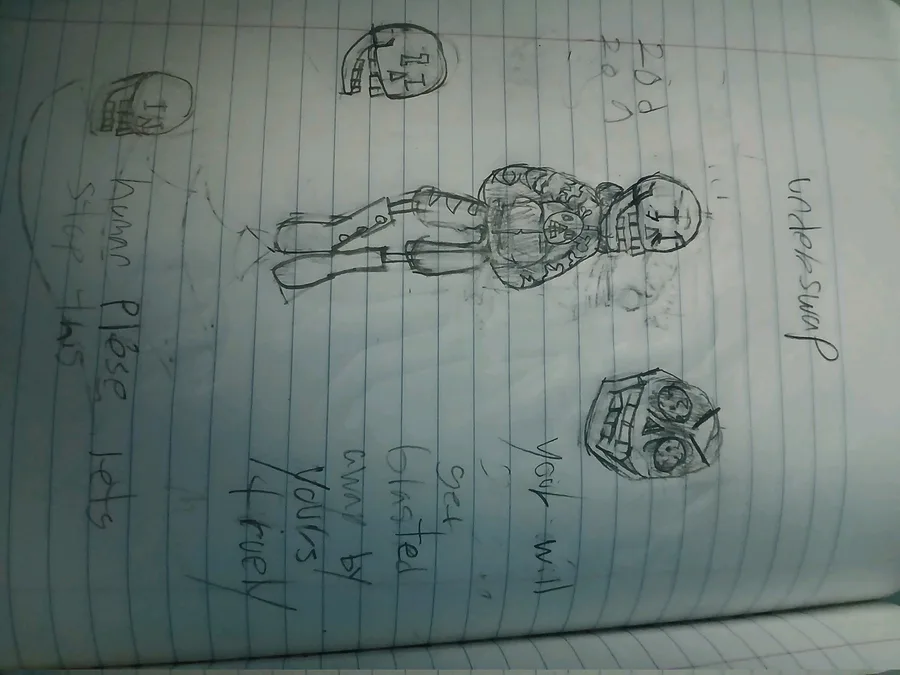 underswap
you will
get
blasted
away by
yours
truely
human Plese lets
stop this